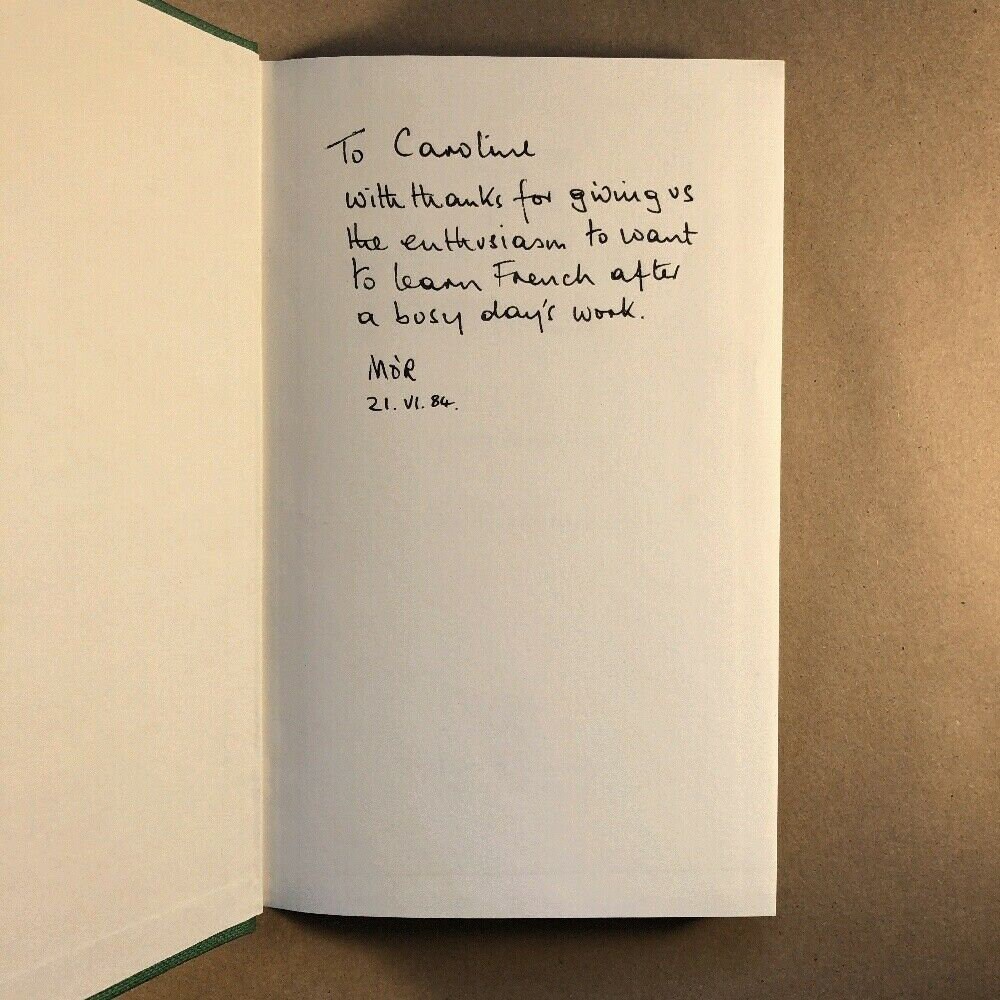 To Caroline
with thanks for giving us
the enthusiasm to want
to learn French after
a busy day's work.
MÒR
21. VI. 84.